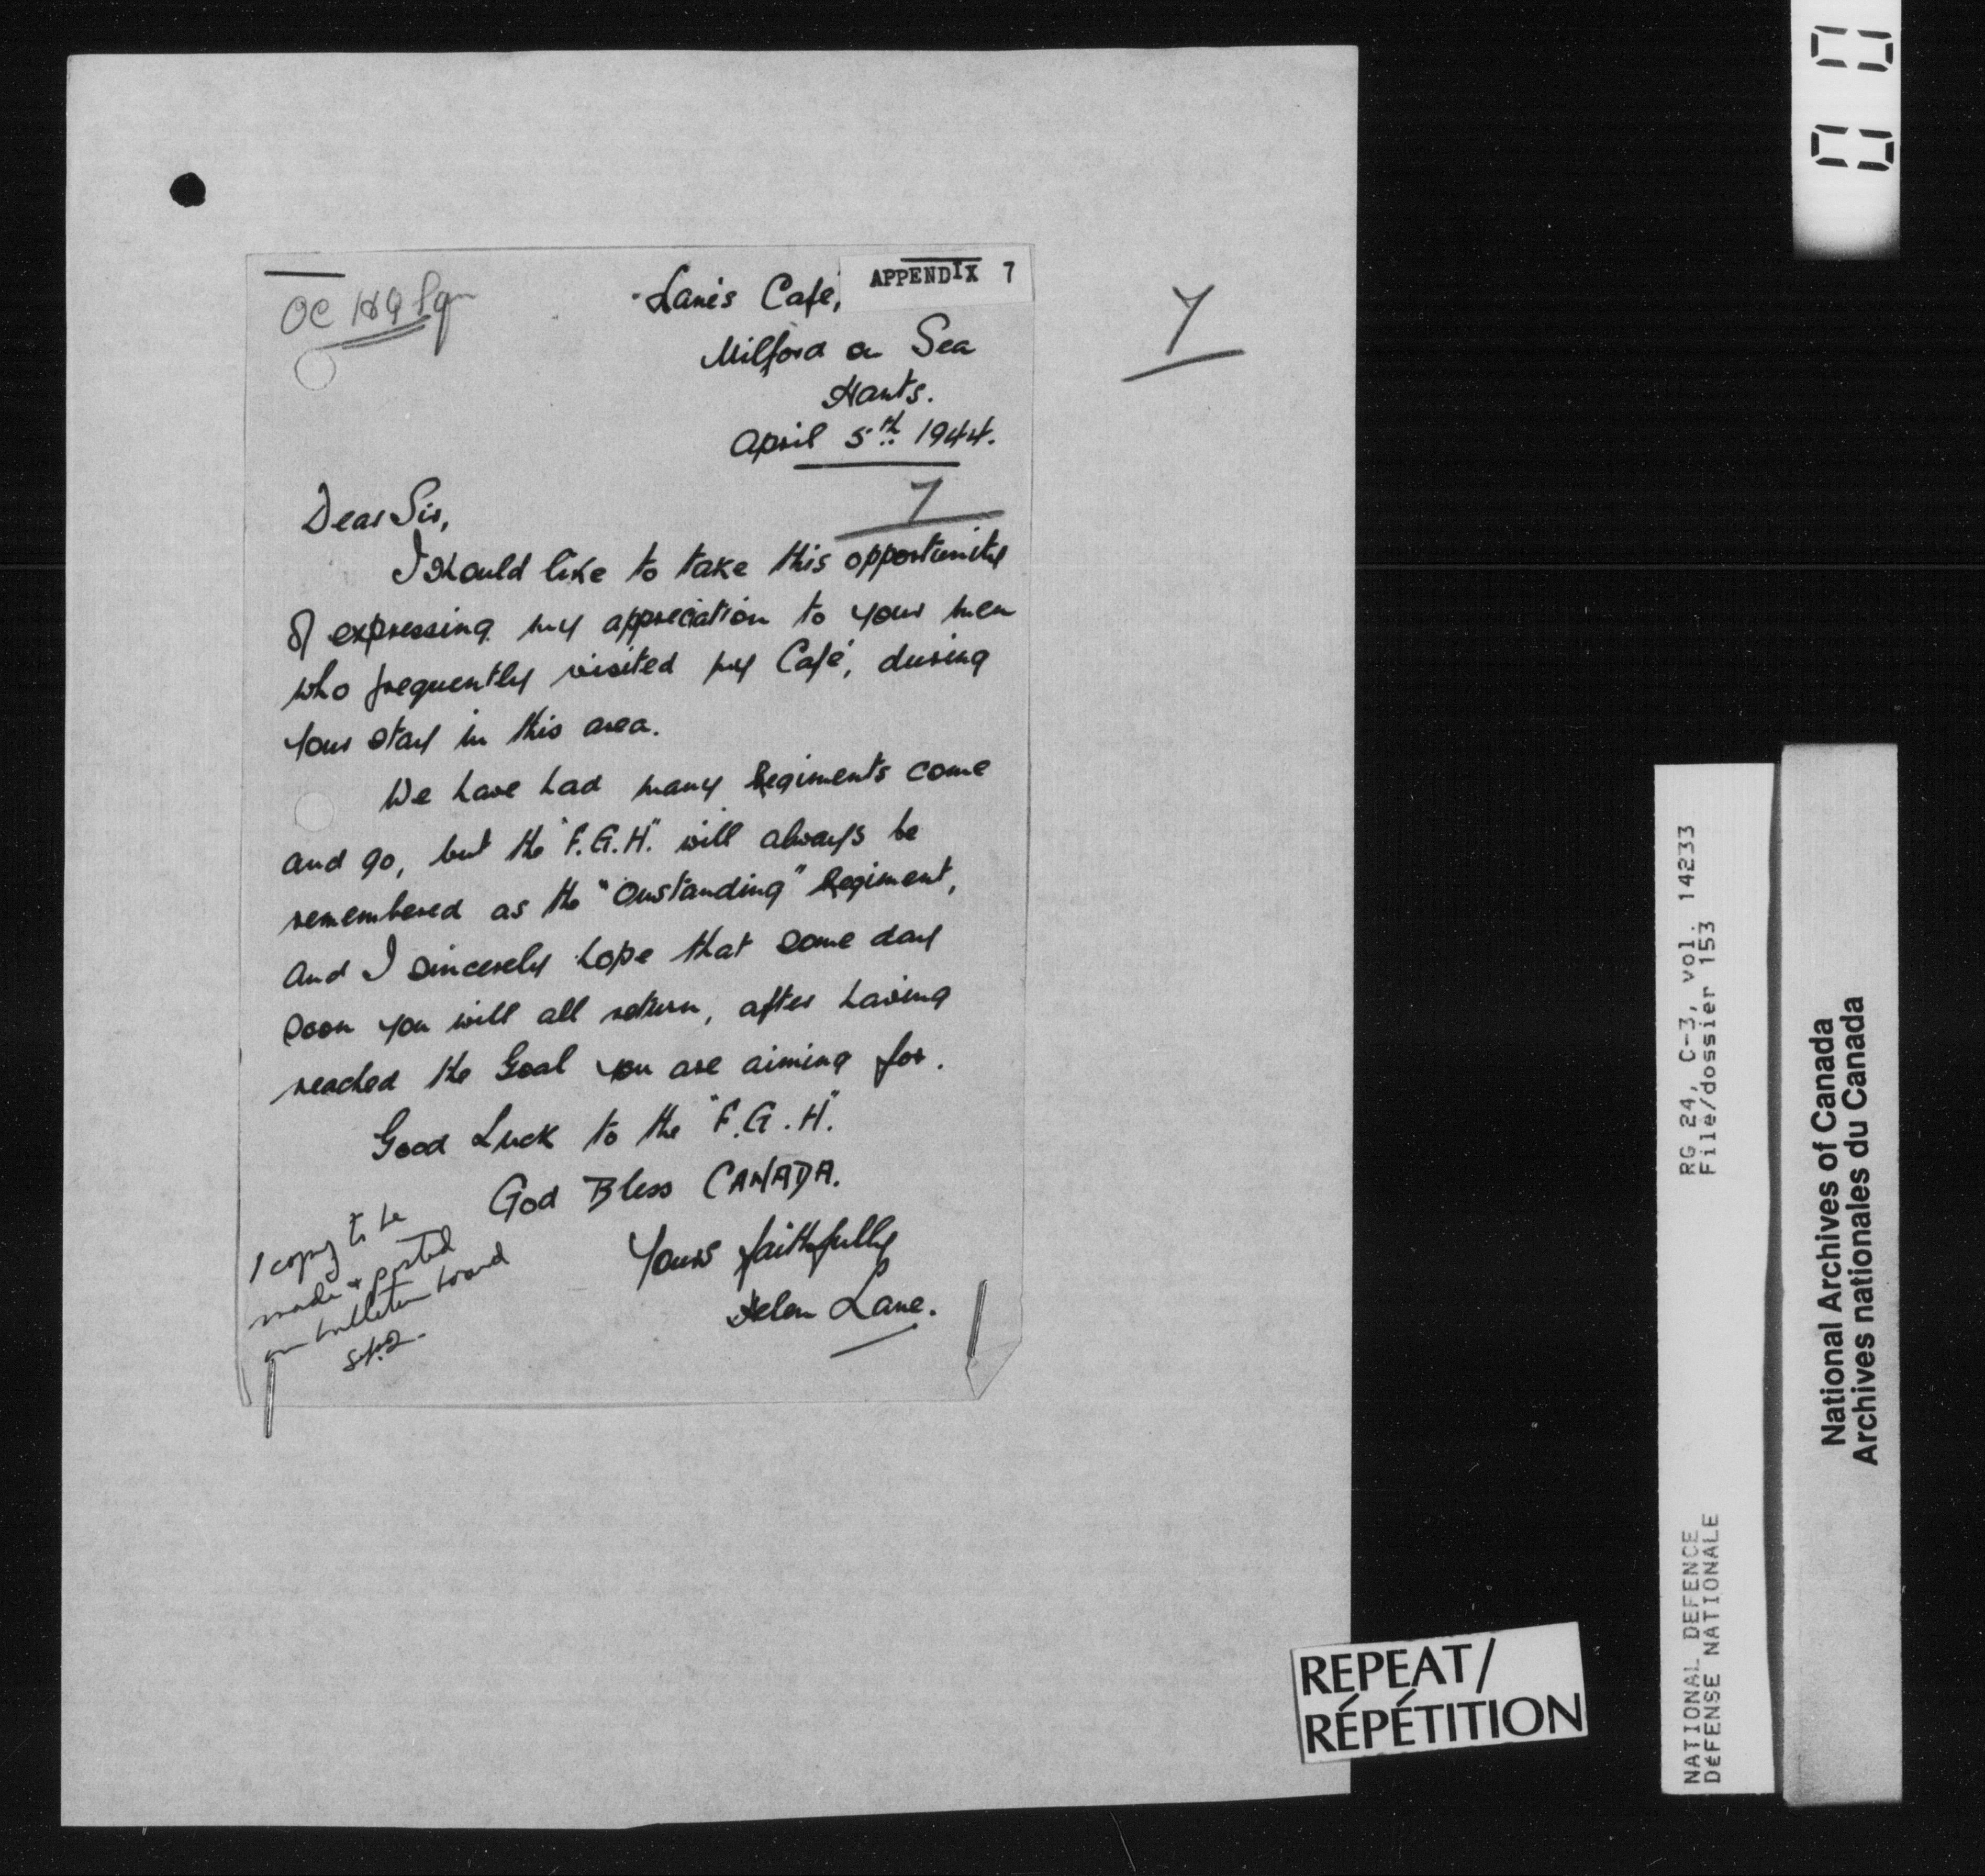 APPENDIX 7
OC HQ Sqn
Lane's Café,
Milford on Sea
Hants.
April 5th 1944.
7
7
Dear Sir,
I should like to take this opportunity
of expressing my appreciation to your men
who frequently visited my Café, during
your stay in this area.
We have had many Regiments come
and go, but the "F.G.H." will always be
remembered as the "Oustanding" Regiment,
and I sincerely hope that some day
soon you will all return, after having
reached the Goal you are aiming for.
Good Luck to the "F.G.H."
God Bless CANADA.
Yours faithfully
Helen Lane.
1 copy to be
made & posted
on bulletin board
REPEAT/
RÉPÉTITION
RG 24, C-3, vol. 14233
File/dossier 153
NATIONAL DEFENCE
DÉFENSE NATIONALE
National Archives of Canada
Archives nationales du Canada